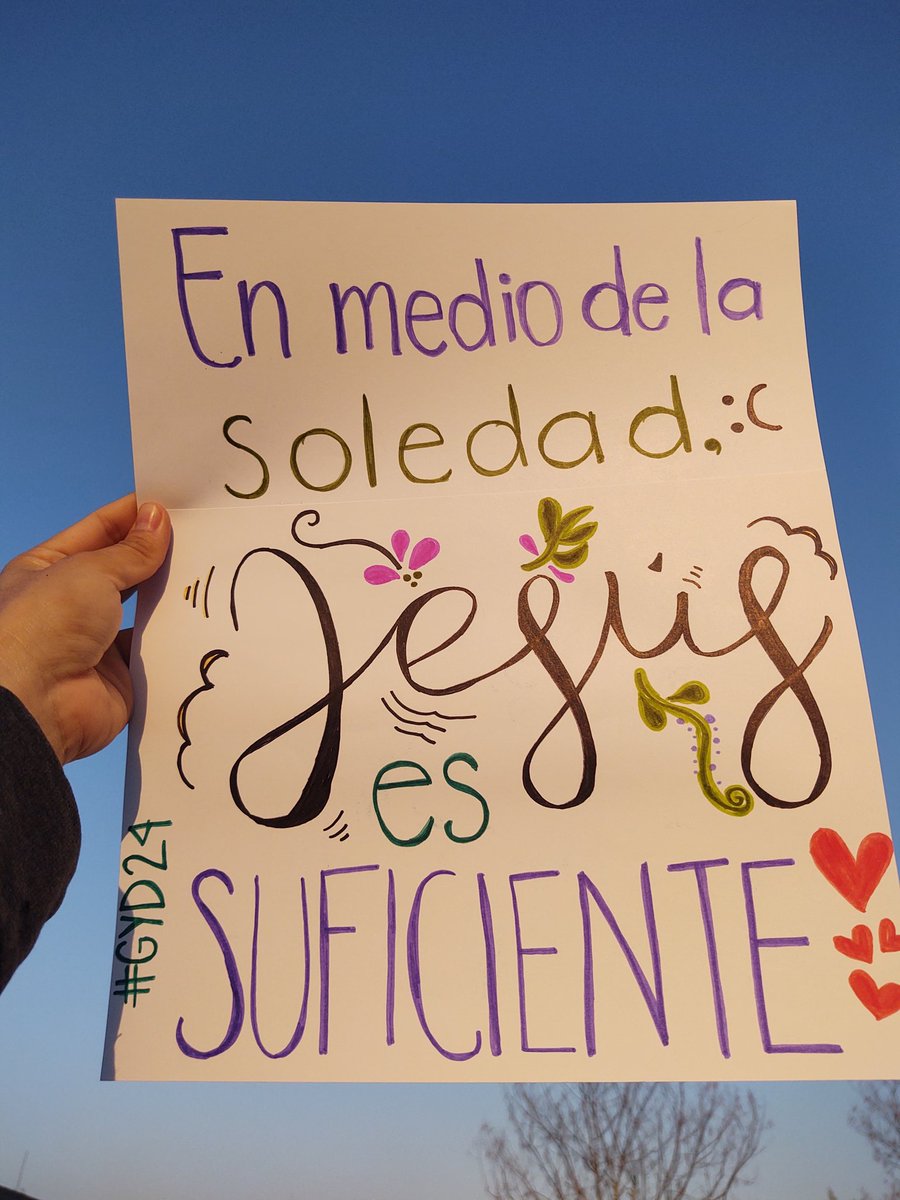 En medio de la
soledad, :(
Jesús
es
SUFICIENTE
#GYD24